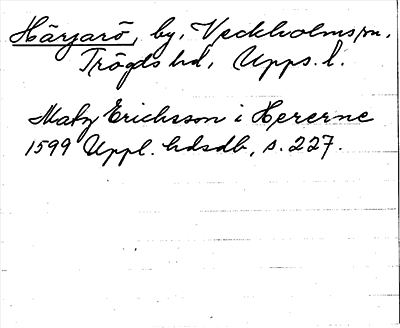 Härjarö, by, Veckholms sn.
Trögds hd, Upps. l.
Matz Erichsson i Hererne
1599 Uppl. hdsdb, s. 227.